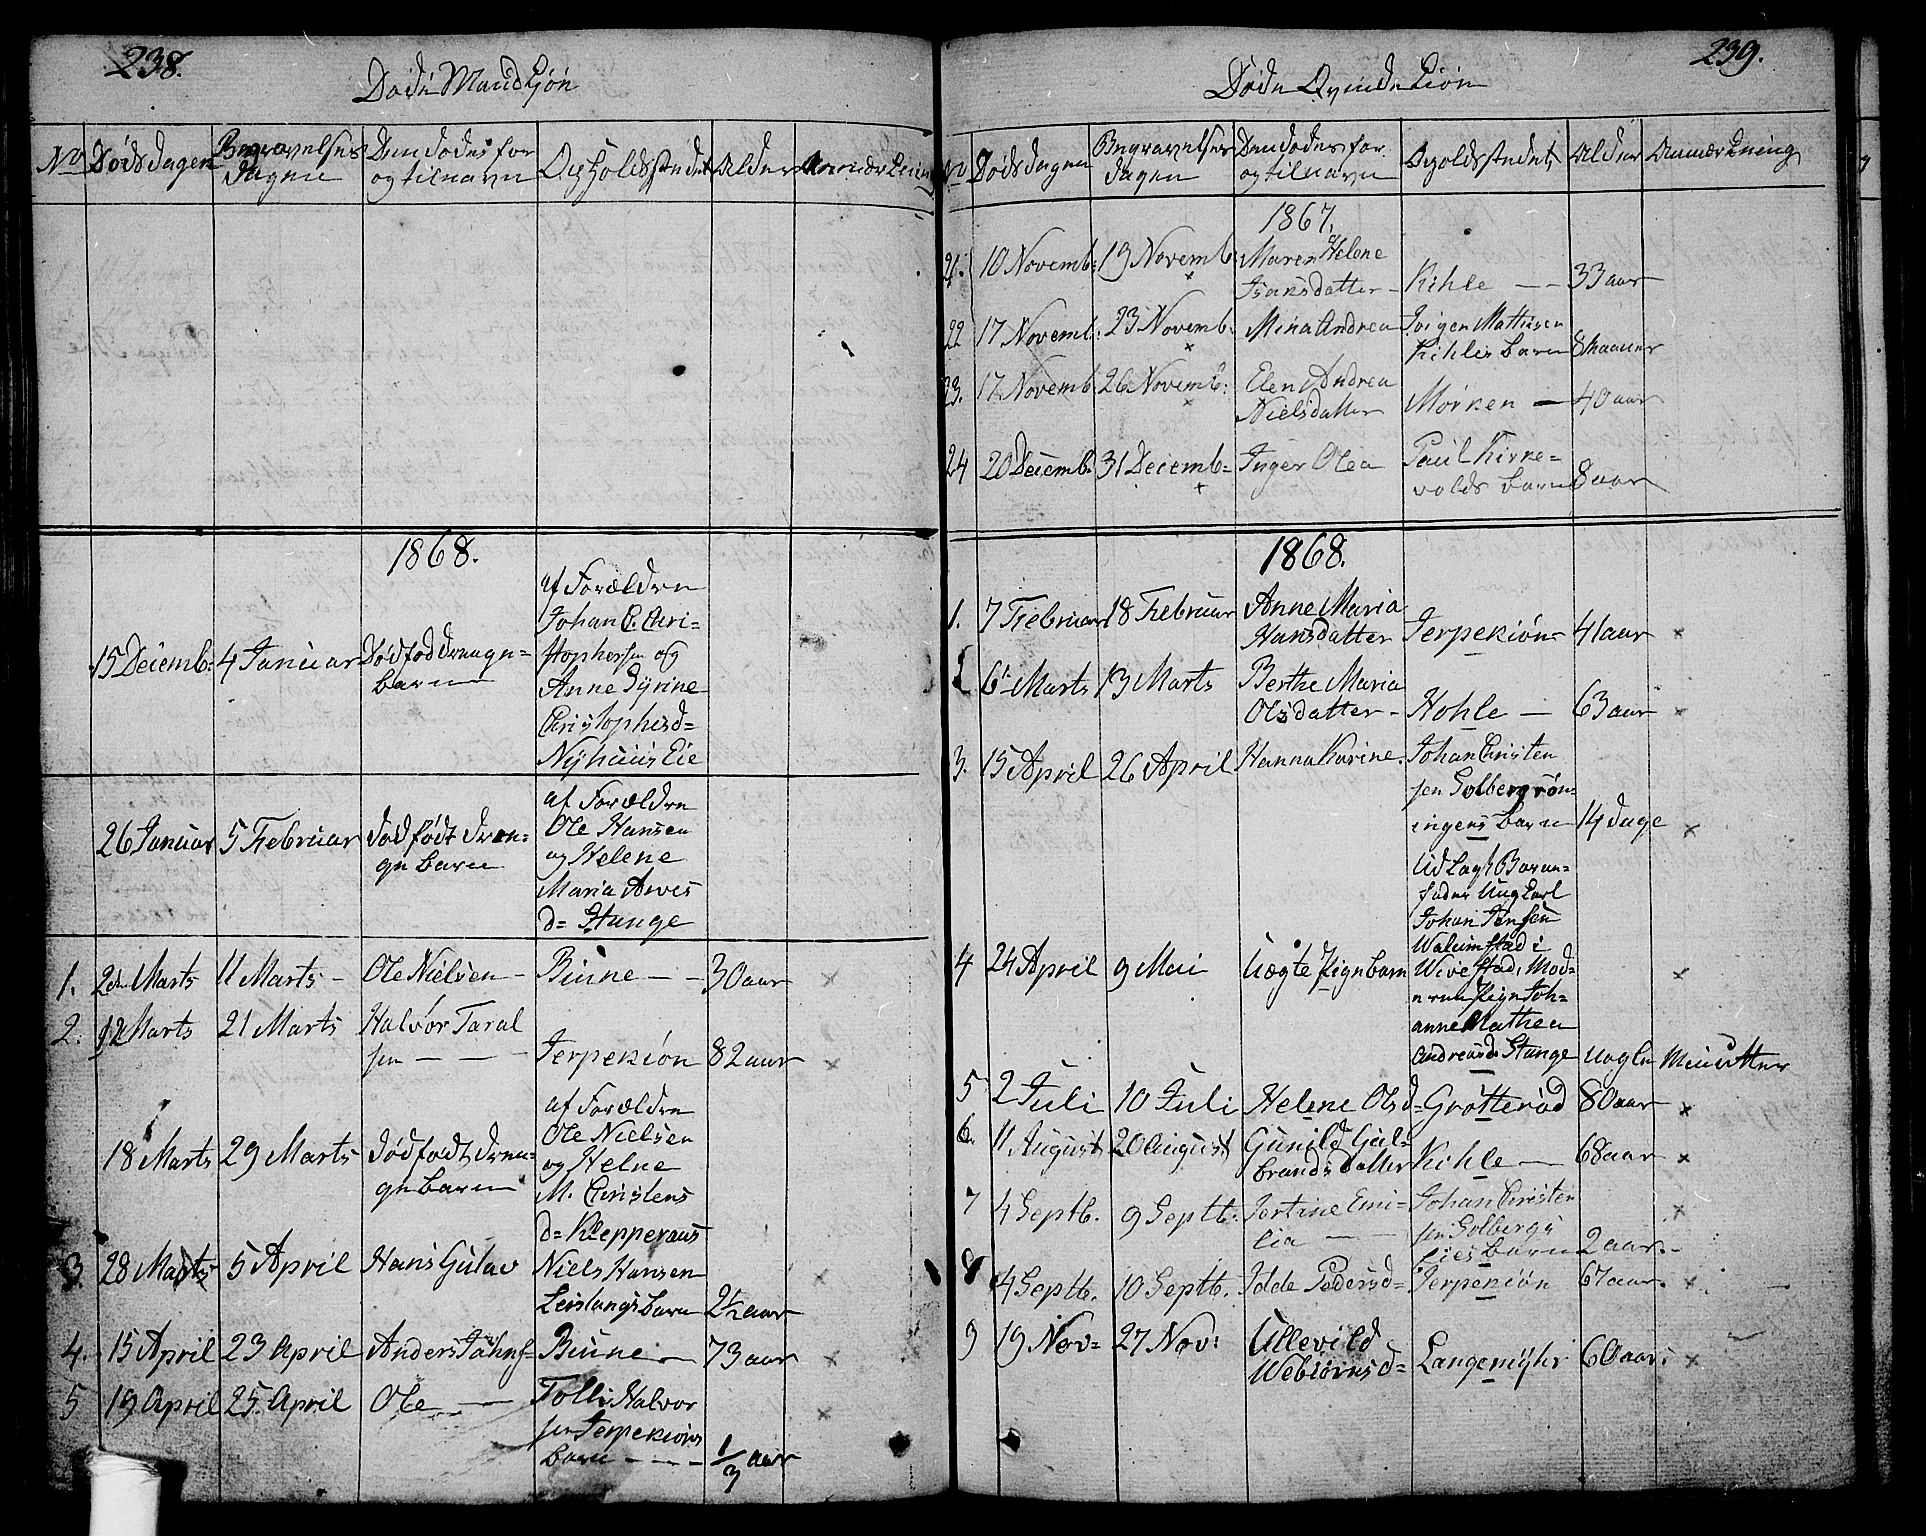 238.
Døde Mandkjøn
No Dødsdagen Begravelses Dagen Den dødes for og tilnavn Opholdstedet Alder Anmærkning
1868.
15 Decemb: 4 Januar Dødfød drænge- barn
af Forældre
Johan C. Chri-
stophersen og
Anne Syrine
Christophersd=
Nyhuus Eie
26 Januar 5 Februar dødfødt dren- ge barn
af Forældre
Ole Hansen
og Helene
Maria Arves
d= Stange
1. 2den Marts 11 Marts - Ole Nielsen - Biune - - 30 aar x
2. 12 Marts 21 Marts Halvør Taral
sen - - - Jerpekiøn 82 aar x
18 Marts 29 Marts dødfødt dren-
ge barn
af Forældre
Ole Nielsen
og Helne
M. Christens
d= Klepperaas
3. 28 Marts 5 April Hans Gulav Niels Hansen
Leislangs barn 2 1/2 aar x
4. 15 April 23 April Anders Johns- Biune - 73 aar x
5 19 April 25 April Ole - Tolle Halvor
sen Jerpekiøns
barn - - - 1/3 aar x
239.
Døde Qvindekiøn
No Dødsdagen Begravelses dagen Den dødes for og tilnavn Opholdstedet Alder Anmærkning
1867.
21. 10 Novemb: 19 Novemb: x Maren Helene
Isaksdatter - Kihle - - 33 aar
22 17 Novemb: 23 Novemb: x Mina Andrea Jørgen Mathisen
Kihles barn 8 Maaner
23. 17 Novemb: 26 Novemb: x Elen Andrea
Nielsdatter Mørken - 40 aar
24 20 Decemb. 31 Decemb= x Inger Olea Paul Kirke=
volds barn 8 aar
1868.
1. 7 Februar 18 Februar Anne Maria
Hansdatter Jerpekiøn= 41 aar x
2 6te Marts 13 Marts Berthe Maria
Olsdatter - Hohle - 63 aar x
3. 15 April 26 April Hanna Karine. Johan Christen
sen Solbergrøn-
ingens barn 14 dage x
Udlagt Barne-
fader Ung Carl
Johan Jensen
Walumstad i
4 24 April 9 Mai Uægte Pigebarn Wivestad, Mod-
eren Pige Joh=
anne Mathea
Andreasd. Stange uægte Minutter x
5 2 Juli 10 Juli Helene Olsd= Grøtterød 80 aar x
6. 11 August 20 August Gunild Gul-
brandsdatter Kihle - 68 aar x
7 4 Septb. 9 Septb: Jertine Emi-
lia - - Johan Christen
sen Solbergs
Eies barn 2 aar. x
8 4 Septb. 10 Septb. Idde Pedersd= Jerpekiøn 67 aar. x
9 19 Nov= 27 Nov: Ullevild
Webiørnsd= Langemyhr 60 aar: x